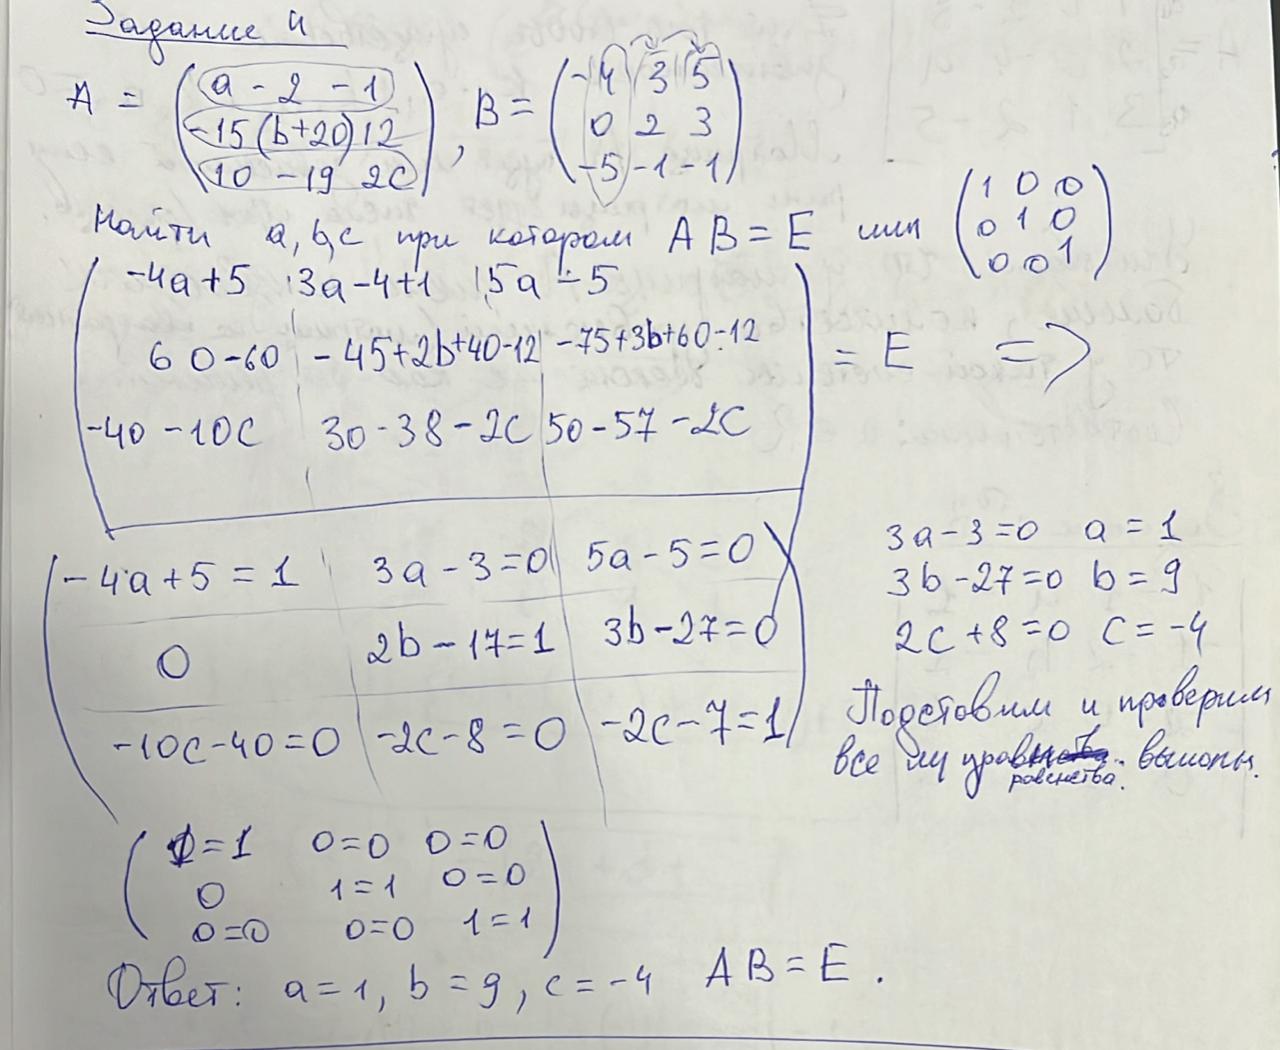 Задание 4
A = (a - 2 - 1
-15 (b+20) 12
10 - 19 2c), B = (-4 3 5
0 2 3
-5 -1 -1)
Найти a, b, c при котором AB = E или (1 0 0
0 1 0
0 0 1)
(-4a+5 3a-4+1 5a-5
60-60 -45+2b+40-12 -75+3b+60-12
-40-10c 30-38-2c 50-57-2c) = E =>
(-4a+5=1 3a-3=0 5a-5=0
0 2b-17=1 3b-27=0
-10c-40=0 -2c-8=0 -2c-7=1)
3a-3=0 a=1
3b-27=0 b=9
2c+8=0 c=-4
Подставим и проверим
все ли равенства. выполн.
(1=1 0=0 0=0
0 1=1 0=0
0=0 0=0 1=1)
Ответ: a=1, b=9, c=-4 AB=E.